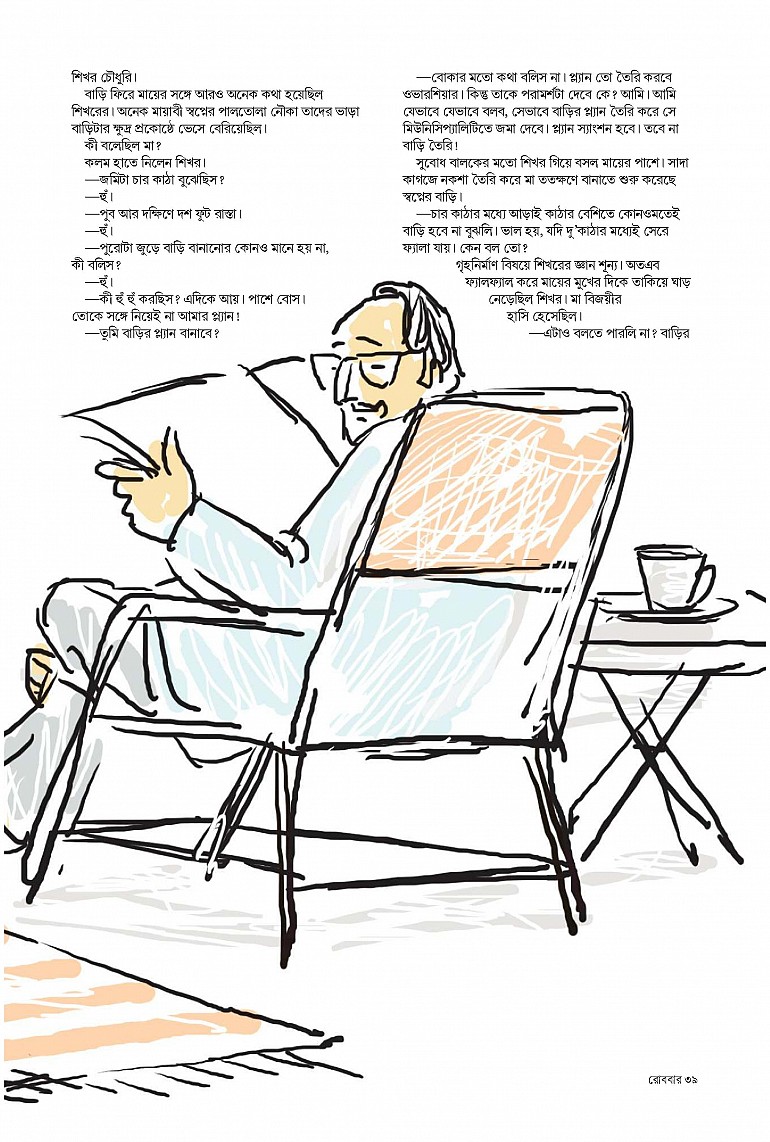 শিখর চৌধুরি।
বাড়ি ফিরে মায়ের সঙ্গে আরও অনেক কথা হয়েছিল
শিখরের। অনেক মায়াবী স্বপ্নের পালতোলা নৌকা তাদের ভাড়া
বাড়িটার ক্ষুদ্র প্রকোষ্ঠে ভেসে বেরিয়েছিল।
কী বলেছিল মা?
কলম হাতে নিলেন শিখর।
—জমিটা চার কাঠা বুঝেছিস?
—হুঁ।
—পুব আর দক্ষিণে দশ ফুট রাস্তা।
—হুঁ।
—পুরোটা জুড়ে বাড়ি বানানোর কোনও মানে হয় না,
কী বলিস?
—হুঁ।
—কী হুঁ হুঁ করছিস? এদিকে আয়। পাশে বোস।
তোকে সঙ্গে নিয়েই না আমার প্ল্যান!
—তুমি বাড়ির প্ল্যান বানাবে?
—বোকার মতো কথা বলিস না। প্ল্যান তো তৈরি করবে
ওভারশিয়ার। কিন্তু তাকে পরামর্শটা দেবে কে? আমি। আমি
যেভাবে যেভাবে বলব, সেভাবে বাড়ির প্ল্যান তৈরি করে সে
মিউনিসিপ্যালিটিতে জমা দেবে। প্ল্যান স্যাংশন হবে। তবে না
বাড়ি তৈরি!
সুবোধ বালকের মতো শিখর গিয়ে বসল মায়ের পাশে। সাদা
কাগজে নকশা তৈরি করে মা ততক্ষণে বানাতে শুরু করেছে
স্বপ্নের বাড়ি।
—চার কাঠার মধ্যে আড়াই কাঠার বেশিতে কোনওমতেই
বাড়ি হবে না বুঝলি। ভাল হয়, যদি দু'কাঠার মধ্যেই সেরে
ফ্যালা যায়। কেন বল তো?
গৃহনির্মাণ বিষয়ে শিখরের জ্ঞান শূন্য। অতএব
ফ্যালফ্যাল করে মায়ের মুখের দিকে তাকিয়ে ঘাড়
নেড়েছিল শিখর। মা বিজয়ীর
হাসি হেসেছিল।
—এটাও বলতে পারলি না? বাড়ির
রোববার ৩৯